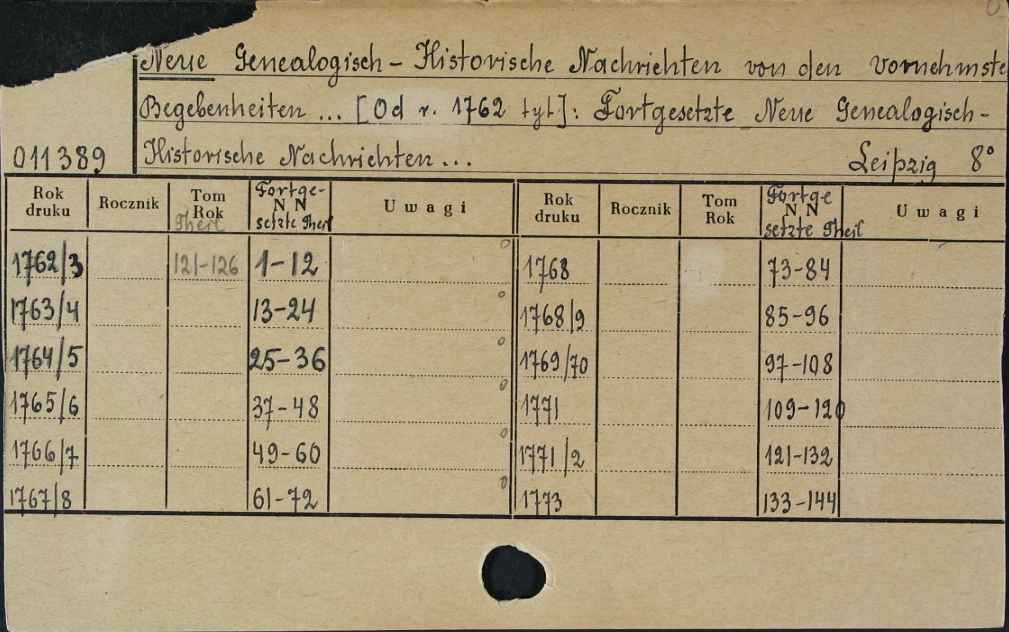 Neue Genealogisch-Historische Nachrichten von den Vornehmste
Begebenheiten ... [Od r. 1762 tyt]: Fortgesetzte Neue Genealogisch-
011389 Historische Nachrichten ... Leipzig 8°
Rok druku Rocznik Tom Rok Theil Fortge- N N setzte Theil Uwagi Rok druku Rocznik Tom Rok Fortge N N setzte Theil Uwagi
1762/3 121-126 1-12 0 1768 73-84
1763/4 13-24 0 1768/9 85-96
1764/5 25-36 0 1769/70 97-108
1765/6 37-48 0 1771 109-120
1766/7 49-60 0 1771/2 121-132
1767/8 61-72 0 1773 133-144